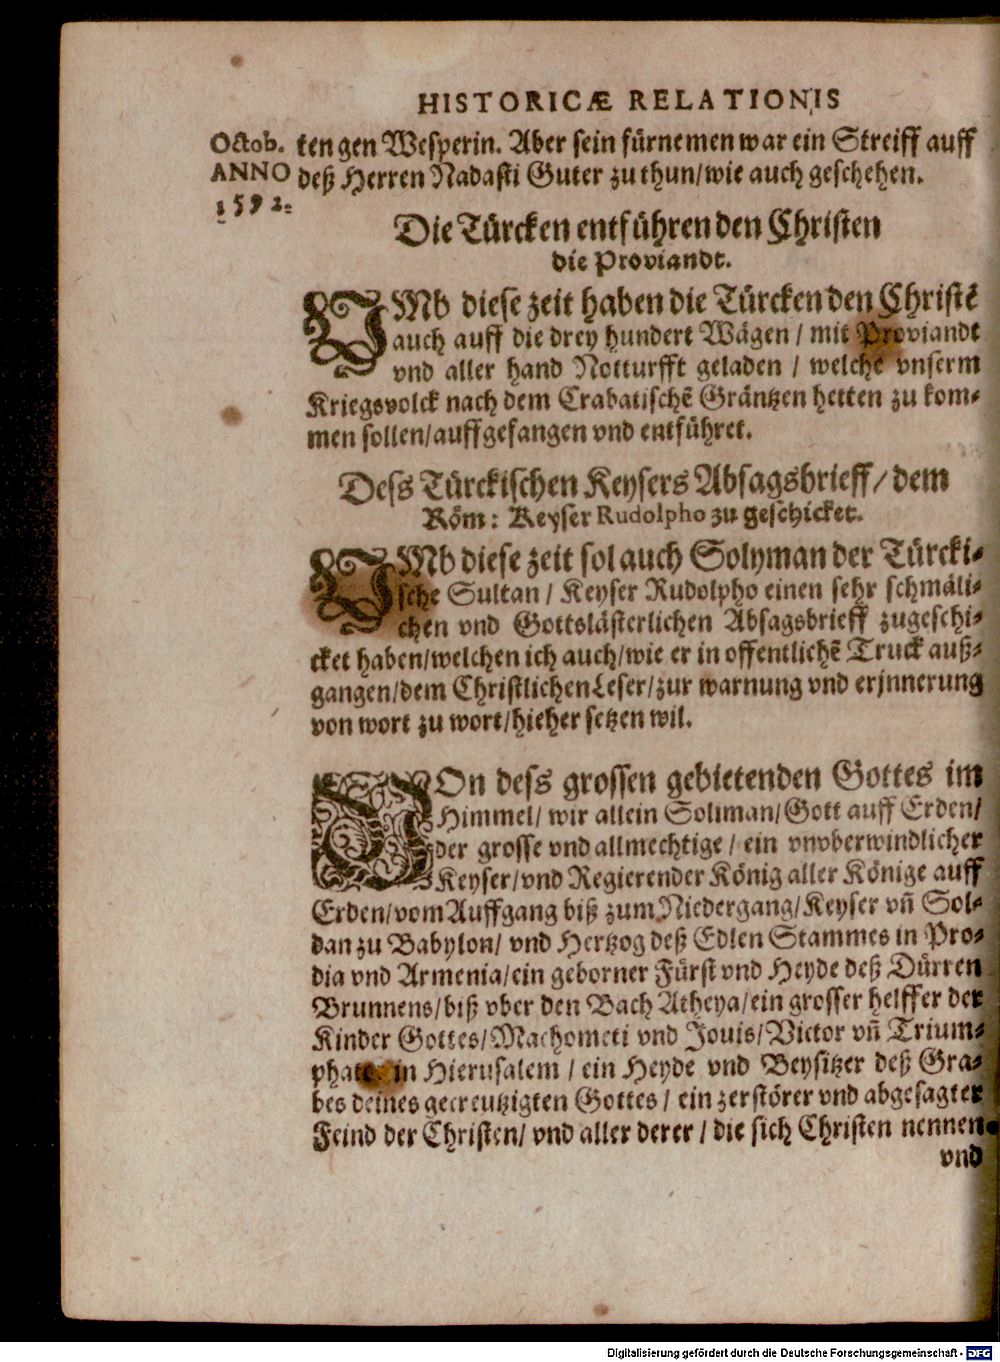 HISTORICÆ RELATIONIS
Octob.
ANNO
1592.
ten gen Wesperin. Aber sein fürnemen war ein Streiff auff
deß Herren Nadasti Guter zu thun/wie auch geschehen.
Die Türcken entführen den Christen
die Proviandt.
VMb diese zeit haben die Türcken den Christẽ
auch auff die drey hundert Wägen / mit Proviandt
vnd aller hand Notturfft geladen / welche vnserm
Kriegsvolck nach dem Crabatischẽ Gräntzen hetten zu kom-
men sollen/auffgefangen vnd entführet.
Dess Türckischen Keysers Absagsbrieff/ dem
Röm: Keyser Rudolpho zu geschicket.
VMb diese zeit sol auch Solyman der Türcki-
sche Sultan / Keyser Rudolpho einen sehr schmäli-
chen vnd Gottslästerlichen Absagsbrieff zugeschi-
cket haben/welchen ich auch/wie er in offentlichẽ Truck auß-
gangen/dem Christlichen Leser/zur warnung vnd erjnnerung
von wort zu wort/hieher setzen wil.
VOn dess grossen gebietenden Gottes im
Himmel/ wir allein Soliman/Gott auff Erden/
der grosse vnd allmechtige / ein vnvberwindlicher
Keyser/vnd Regierender König aller Könige auff
Erden/vom Auffgang biß zum Niedergang/Keyser vñ Sol-
dan zu Babylon/ vnd Hertzog deß Edlen Stammes in Pro-
dia vnd Armenia/ein geborner Fürst vnd Heyde deß Dürren
Brunnens/biß vber den Bach Atheya/ein grosser helffer der
Kinder Gottes/Machometi vnd Jouis/Victor vñ Trium-
phate in Hierusalem / ein Heyde vnd Beysitzer deß Gra-
bes deines gecreutzigten Gottes / ein zerstörer vnd abgesagter
Feind der Christen/ vnd aller derer / die sich Christen nennen
vnd
Digitalisierung gefördert durch die Deutsche Forschungsgemeinschaft - DFG